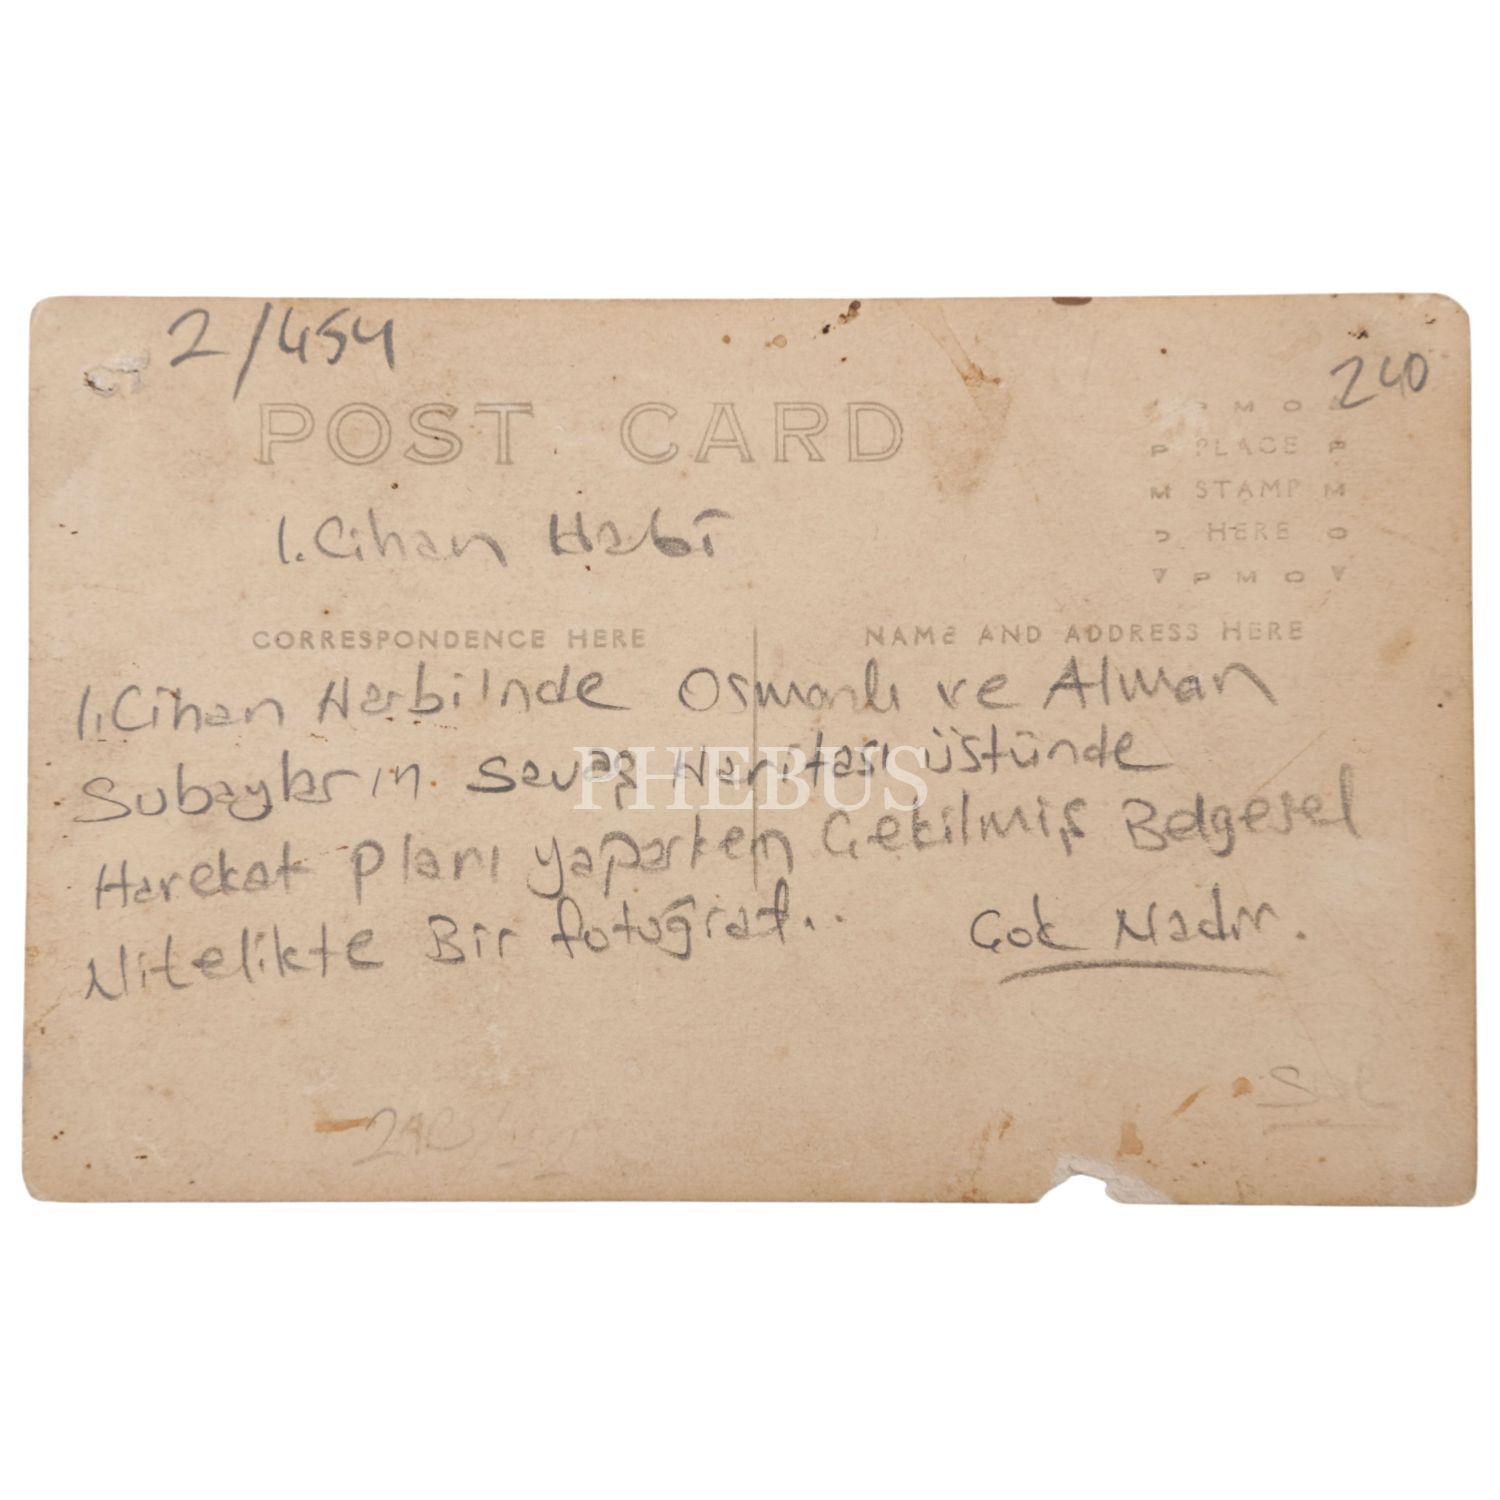 2/454
240
POST CARD
P M O
P PLACE P
M STAMP M
O HERE O
P M O
1. Cihan Habi
CORRESPONDENCE HERE
NAME AND ADDRESS HERE
1. Cihan Harbi'nde Osmanlı ve Alman
Subayların Savaş Haritası üstünde
PHEBUS
Harekat planı yaparken Çekilmiş Belgesel
Nitelikte Bir fotoğraf..
Çok Nadir.